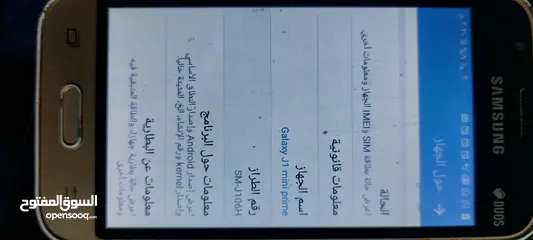 SAMSUNG
DUOS
حول الجهاز
الحالة
اعرض حالة بطاقة SIM وIMEI الجهاز ومعلومات أخرى.
معلومات قانونية
اسم الجهاز
Galaxy J1 mini prime
رقم الطراز
SM-J106H
معلومات حول البرنامج
اعرض إصدار Android وإصدار النطاق الأساسي
وإصدار kernel ورقم الإنشاء، إلخ، المثبتة حالياً.
معلومات عن البطارية
اعرض حالة بطارية جهازك والطاقة المتبقية فيه
ومعلومات أخرى.
السوق المفتوح
opensooq.com